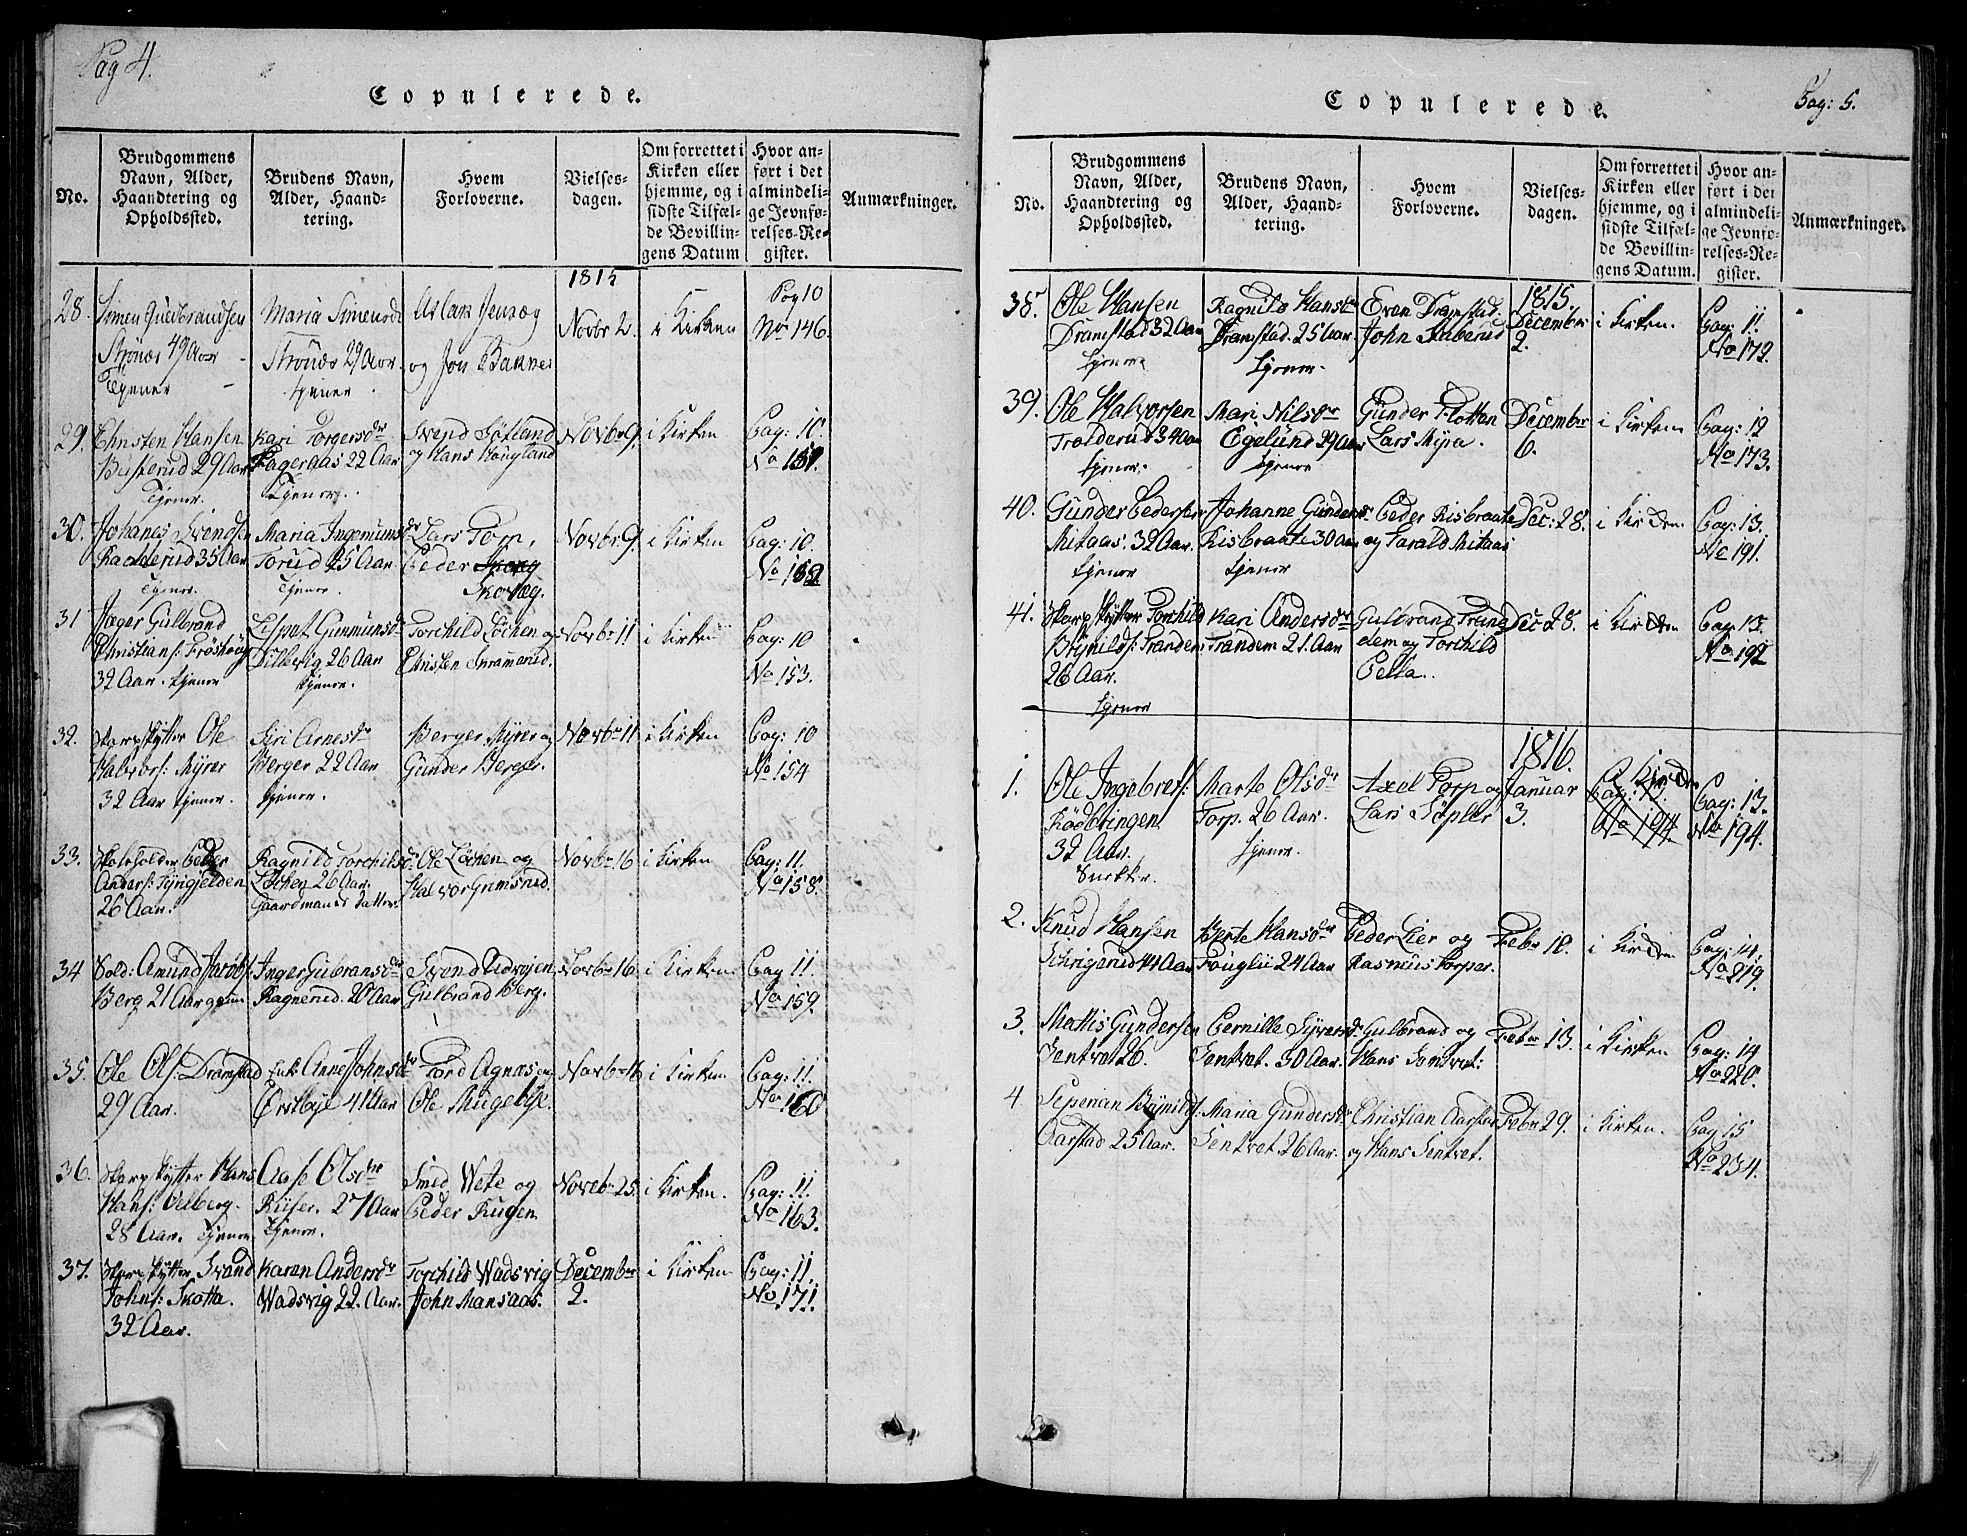 Pag 4.
Copulerede.
No.
Brudgommens
Navn, Alder,
Haandtering og
Opholdssted.
Brudens Navn,
Alder, Haand-
tering.
Hvem
Forloverne.
Vielses-
dagen.
Om forrettet i
Kirken eller
hjemme, og i
sidste Tilfæl-
de Bevillin-
gens Datum
Hvor an-
ført i det
almindeli-
ge Jevnfø-
relses-Re-
gister.
Anmærkninger.
1815
28. Simen Gudbrandsen
Strönæs 49 Aar
Tjener
Maria Simensdr
Strönæs 29 Aar
Tjener
Aslak
og Jon
Novbr 2.
i Kirken
Pag 10
No 146.
29. Christen Hansen
Busterud 29 Aar
Tjener.
Kari Torgersdr
Fageraas 22 Aar
Tjener.
Svend Götland
og Hans Haugland
Novbr 9.
i Kirken
Pag: 10.
No 151.
30. Johanes Svends
Raaderud 35 Aar
Tjener.
Maria Ingemunsdr
Torud 25 Aar
Tjener.
Lars Torp,
Peder
Skovæg.
Novbr 9.
i Kirken
Pag: 10.
No 152
31 Jæger Gulbrand
Christians: Fröshoug
32 Aar. Tjener
Gunmunsdr
Dillevig 26 Aar
Tjener.
Torchild Löchen og
Christen Skramerud.
Novbr 11
i Kirken
Pag: 10
No 153.
32. Skarpskytter Ole
Halvors: Myrer
32 Aar Tjener.
Siri Arnesdr
Berger 22 Aar
Tjener.
Berger Myrer og
Gunder Berger.
Novbr 11
i Kirken
Pag: 10
No 154
33. Skoleholder Peder
Anders: Tyrigjelden
26 Aar.
Ragnild Torchildsdr
Löchen 26 Aar.
Gaardmands Datter.
Ole Löchen og
Halvor Grimsrud.
Novbr 16
i Kirken
Pag: 11.
No 158.
34 Sold: Amund Jacobs:
Berg 21 Aar
Inger Gulbransdr
Ragnerud. 20 Aar
Svend Udvojen
Gulbrand Berg.
Novbr 16.
i Kirken.
Pag 11.
No 159.
35. Ole Ols: Dramstad
29 Aar.
Enk: Anne Johnsdr
Örstbye 41 Aar
Tord Agnæs og
Ole Mugebye.
Novbr 16
i Kirken
Pag: 11.
No 160
36. Skarpskytter Hans
Hans: Velberg.
28 Aar. Tjener
Aase Olsdr
Riiser. 27 Aar
Tjener.
Smed Wete og
Peder Rugen
Novebr 25.
i Kirken.
Pag: 11.
No 163.
37. Skarpskytter Svend
Johns: Skotta.
32 Aar.
Karen Andersdr
Wadsvig 22. Aar.
Torchild Wadsvig
John Mansaas.
December
2.
i Kirken
Pag: 11.
No 171.
Pag: 5.
Copulerede.
No.
Brudgommens
Navn, Alder,
Haandtering og
Opholdssted.
Brudens Navn,
Alder, Haand-
tering.
Hvem
Forloverne.
Vielses-
dagen.
Om forrettet i
Kirken eller
hjemme, og i
sidste Tilfæl-
de Bevillin-
gens Datum.
Hvor an-
ført i det
almindeli-
ge Jevnfø-
relses-Re-
gister.
Anmærkninger.
1815.
38. Ole Hansen
Dramstad 32 Aar
Tjener
Ragnild Hansdr
Dramstad. 25 Aar
Tjener.
Even Dramstad.
John Stuberud
December
2.
i Kirken.
Pag: 11.
No 172.
39. Ole Halvorsen
Trolderud 34 Aar
Tjener.
Mari Nilsdr
Egelund 29 Aar
Tjener
Gunder Flotten
Lars Myra.
December
6.
i Kirken
Pag: 12
No 173.
40. Gunder Pedersen
Mitaas. 32 Aar.
Tjener
Johanne Gundersdr
Risbraate 30 Aar
Tjener
Peder Risbraate
og Tarald Mitaas
Dec: 28.
i Kirken
Pag: 13.
No 191.
41. Skarpskytter Torchild
Brynilds: Trandem
26 Aar.
Tjener
Kari Andersdr
Trandem 21. Aar
Gulbrand Tran-
dem og Torchild
Pella.
Dec 28.
i Kirken
Pag: 13.
No 192
1816.
1. Ole Ingebrets:
Rödbringen
32 Aar.
Marte Olsdr
Torp. 26 Aar.
Tjener.
Axel Torp og
Lars Söpler
Januar
3.
i Kirken
Pag: 13.
No 194
Pag: 13.
No 194.
2. Knud Hansen
44 Aar
Berte Hansdr
Fouglü 24 Aar
Peder Lier og
Rasmus Torper.
Febr 10.
i Kirken
Pag: 14.
No 219.
3. Mattis Gundersen
Sentvet 26.
Pernille Syversdr
Sentvet. 30 Aar.
Gulbrand og
Hans Sentvet:
Febr 13.
i Kirken
Pag: 14
No 220.
4. Seperian Brynilds:
Aarstad 25 Aar.
Maria Gundersdr
Sentvet 26 Aar.
Christian Aarstad
og Hans Sentvet.
Febr 29.
i Kirken.
Pag 15
No 234.